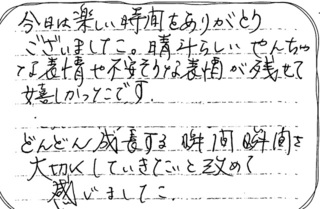 今日は楽しい時間をありがとう
ございました。晴斗らしい やんちゃ
な表情や不安そうな表情が残せて
嬉しかったです.
どんどん成長する 瞬間瞬間を
大切にしていきたいと改めて
感じました